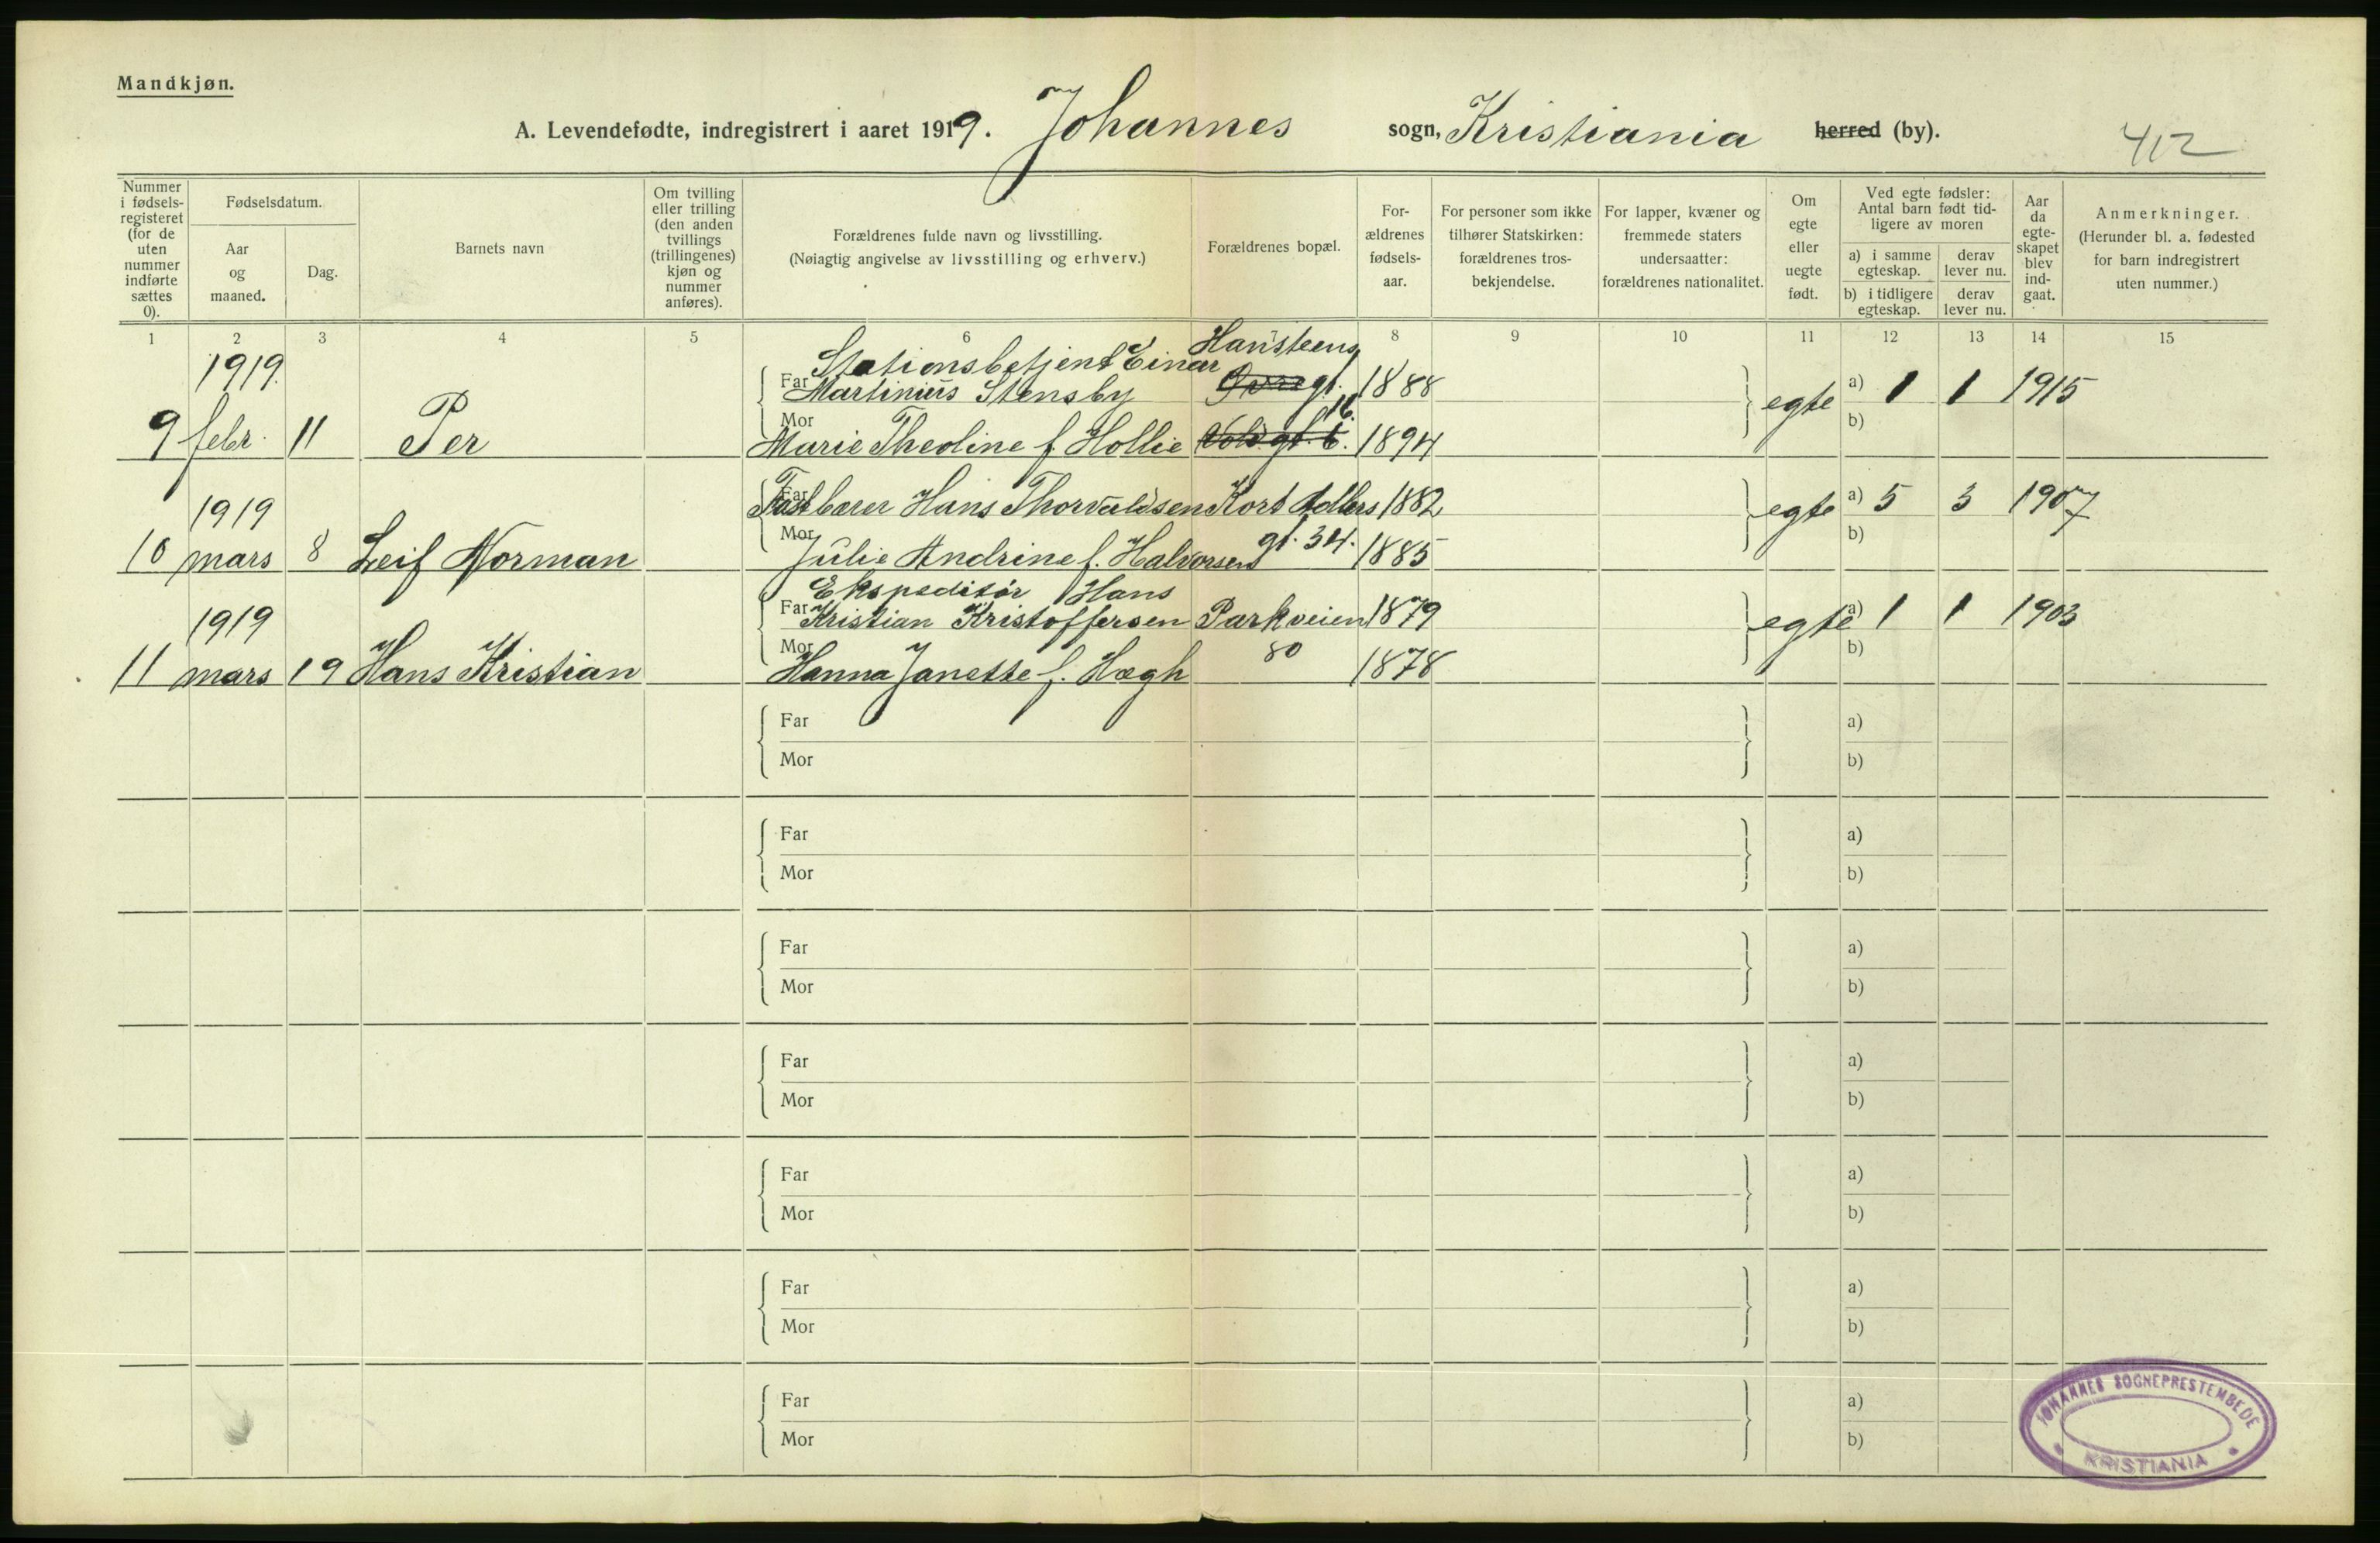 Mandkjøn.
A. Levendefødte, indregistrert i aaret 1919. Johannes sogn, Kristiania herred (by).
412
Nummer i fødsels-registeret (for de uten nummer indførte sættes 0).
Fødselsdatum.
Aar og maaned.
Dag.
Barnets navn
Om tvilling eller trilling (den anden tvillings (trillingenes) kjøn og nummer anføres).
Forældrenes fulde navn og livsstilling.
(Nøiagtig angivelse av livsstilling og erhverv.)
Forældrenes bopæl.
For-ældrenes fødsels-aar.
For personer som ikke tilhører Statskirken: forældrenes tros-bekjendelse.
For lapper, kvæner og fremmede staters undersaatter: forældrenes nationalitet.
Om egte eller uegte født.
Ved egte fødsler: Antal barn født tid-ligere av moren
a) i samme egteskap.
derav lever nu.
b) i tidligere egteskap.
derav lever nu.
Aar da egte-skapet blev ind-gaat.
Anmerkninger.
(Herunder bl. a. fødested for barn indregistrert uten nummer.)
1 2 3 4 5 6 7 8 9 10 11 12 13 14 15
1919.
Stationsbetjent Einar Hansteens
Far Martinius Stensby gt. 1888
egte a) 1 1 1915
b)
16.
9 febr. 11 Per
Mor Marie Theoline f. Hollie 1894
1919
Far Hans Thorvaldsen Kort Adlers 1882
egte a) 5 3 1907
b)
10 mars 8 Leif Norman
Mor Julie Andrine f. Halvorsen gt. 34. 1885
1919
Ekspeditør Hans
Far Kristian Kristoffersen Parkveien 1879
egte a) 1 1 1903
b)
11 mars 19 Hans Kristian
Mor Hanna Janette f. Høgh 80 1878
Far a)
Mor b)
Far a)
Mor b)
Far a)
Mor b)
Far a)
Mor b)
Far a)
Mor b)
Far a)
Mor b)
Far a)
Mor b)
JOHANNES SOGNEPRESTEMBEDE
KRISTIANIA